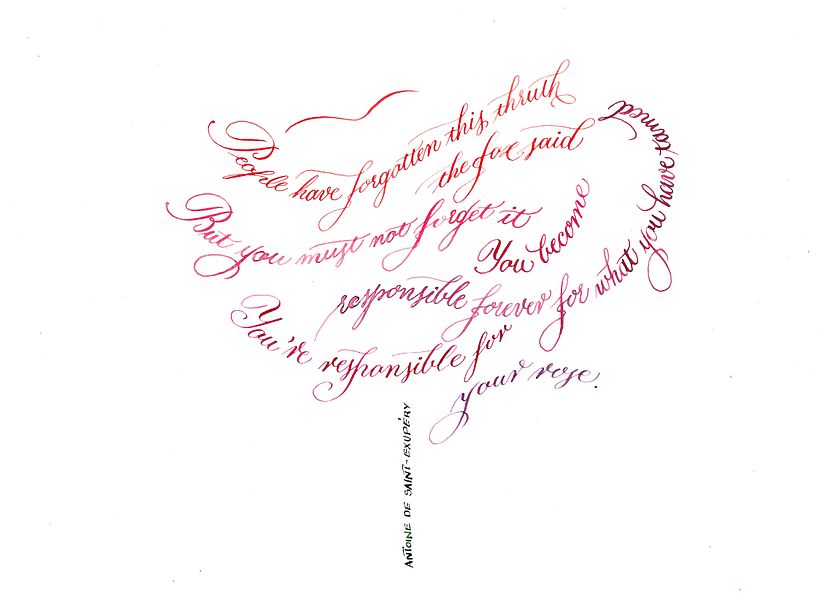 People have forgotten this thruth
the fox said
But you must not forget it
You become
responsible forever for what you have tamed
You're responsible for
your rose.
ANTOINE DE SAINT-EXUPÉRY